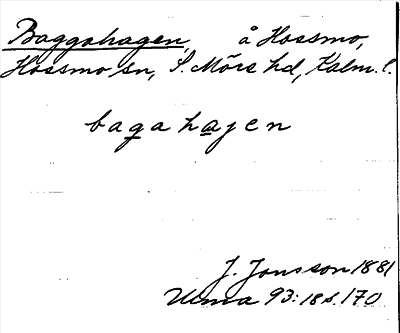 Baggahagen, å Hossmo,
Hossmo sn, S. Möre hd, Kalm. l.
bagahajen
J. Jonsson 1881
Uma 93:18 s. 170